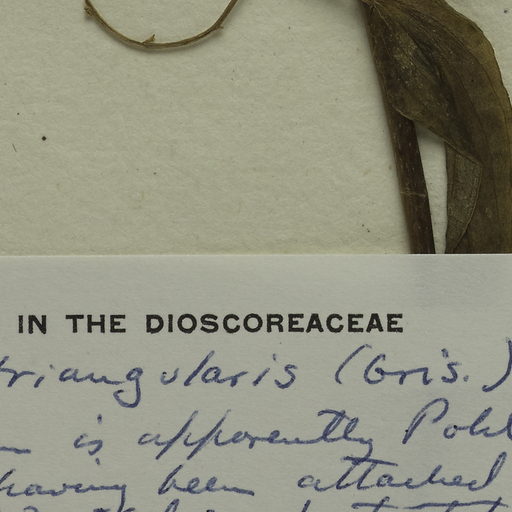 IN THE DIOSCOREACEAE
triangularis (Gris.)
is apparently Pohl
having been attached